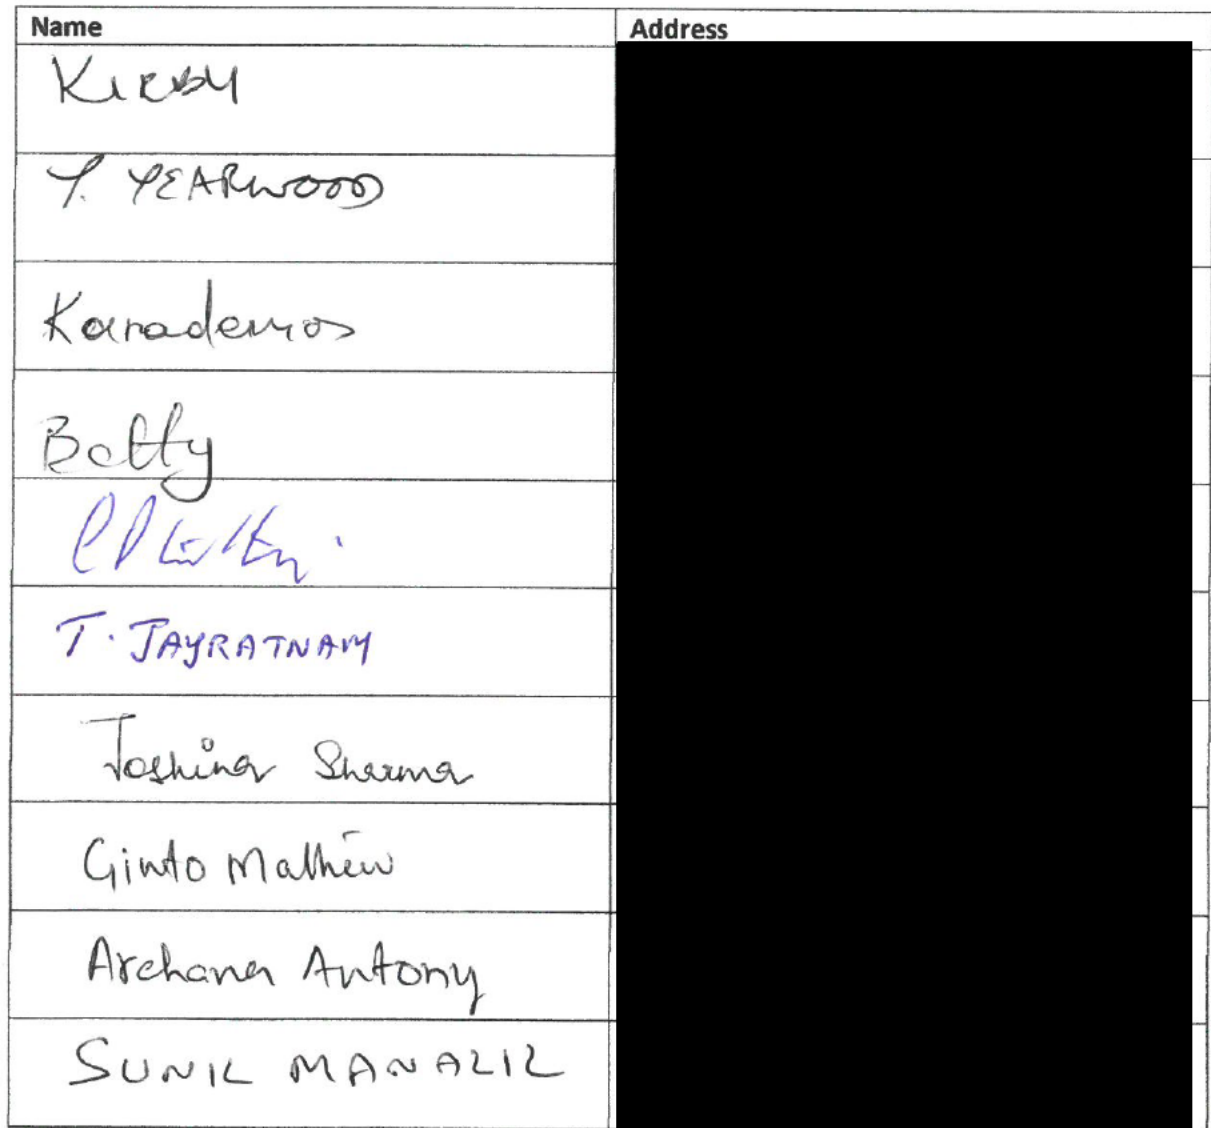 Name Address
KIRBY
Y. YEARWOOD
Karademos
Betty
T. JAYRATNAM
Joshina Sharma
Ginto Mathew
Archana Antony
SUNIL MANALIL